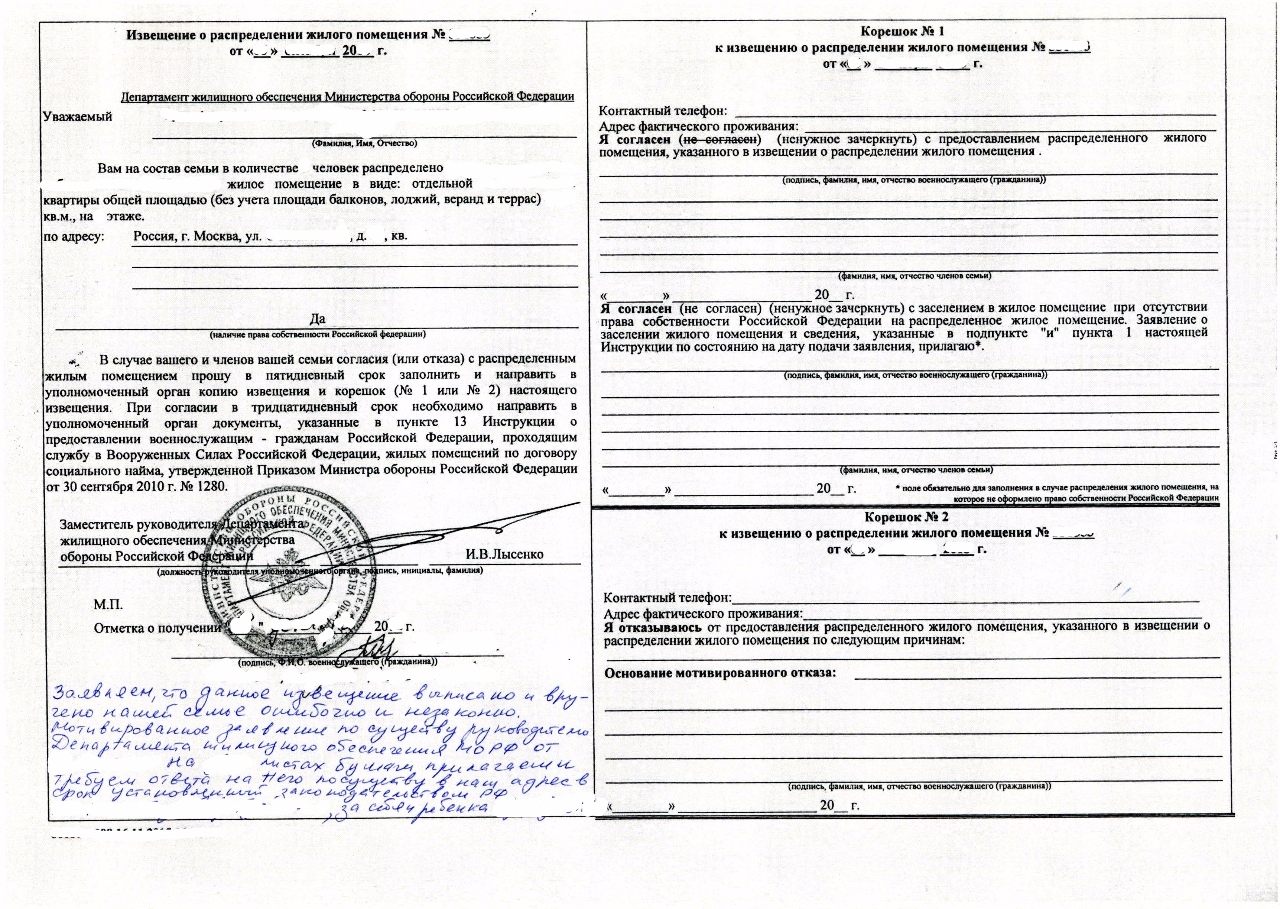 Извещение о распределении жилого помещения №
от « » 20 г.
Департамент жилищного обеспечения Министерства обороны Российской Федерации
Уважаемый
(Фамилия, Имя, Отчество)
Вам на состав семьи в количестве человек распределено
жилое помещение в виде: отдельной
квартиры общей площадью (без учета площади балконов, лоджий, веранд и террас)
кв.м., на этаже.
по адресу: Россия, г. Москва, ул. , д. , кв.
Да
(наличие права собственности Российской федерации)
В случае вашего и членов вашей семьи согласия (или отказа) с распределенным
жилым помещением прошу в пятидневный срок заполнить и направить в
уполномоченный орган копию извещения и корешок (№ 1 или № 2) настоящего
извещения. При согласии в тридцатидневный срок необходимо направить в
уполномоченный орган документы, указанные в пункте 13 Инструкции о
предоставлении военнослужащим - гражданам Российской Федерации, проходящим
службу в Вооруженных Силах Российской Федерации, жилых помещений по договору
социального найма, утвержденной Приказом Министра обороны Российской Федерации
от 30 сентября 2010 г. № 1280.
Заместитель руководителя Департамента
жилищного обеспечения Министерства
обороны Российской Федерации И.В.Лысенко
(должность руководителя уполномоченного органа, подпись, инициалы, фамилия)
М.П.
Отметка о получении " 20 г.
(подпись, Ф.И.О. военнослужащего (гражданина))
Заявляем, что данное извещение выписано и вру-
чено нашей семье ошибочно и незаконно.
Мотивированное заявление по существу руководителю
Департамента жилищного обеспечения МО РФ от
на листах бумаги прилагаем и
требуем ответа на него по существу в наш адрес в
срок установленный законодательством РФ
за себя ребенка
Корешок № 1
к извещению о распределении жилого помещения №
от « » г.
Контактный телефон:
Адрес фактического проживания:
Я согласен (не согласен) (ненужное зачеркнуть) с предоставлением распределенного жилого
помещения, указанного в извещении о распределении жилого помещения .
(подпись, фамилия, имя, отчество военнослужащего (гражданина))
(фамилия, имя, отчество членов семьи)
« » 20 г.
Я согласен (не согласен) (ненужное зачеркнуть) с заселением в жилое помещение при отсутствии
права собственности Российской Федерации на распределенное жилое помещение. Заявление о
заселении жилого помещения и сведения, указанные в подпункте "и" пункта 1 настоящей
Инструкции по состоянию на дату подачи заявления, прилагаю*.
(подпись, фамилия, имя, отчество военнослужащего (гражданина))
(фамилия, имя, отчество членов семьи)
« » 20 г. * поле обязательно для заполнения в случае распределения жилого помещения, на
которое не оформлено право собственности Российской Федерации
Корешок № 2
к извещению о распределении жилого помещения №
от « » г.
Контактный телефон:
Адрес фактического проживания:
Я отказываюсь от предоставления распределенного жилого помещения, указанного в извещении о
распределении жилого помещения по следующим причинам:
Основание мотивированного отказа:
(подпись, фамилия, имя, отчество военнослужащего (гражданина))
« » 20 г.